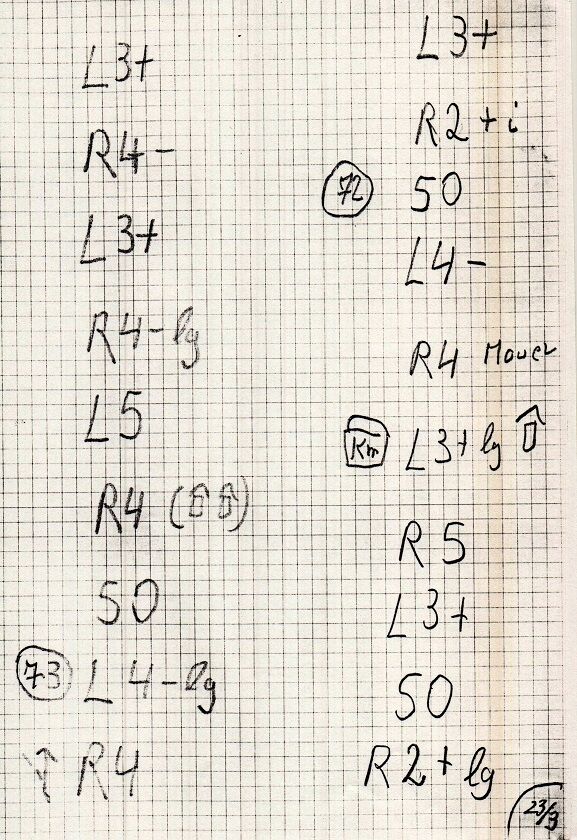 L3+
R4-
L3+
R4-lg
L5
R4 ( )
50
73 L4-lg
R4
L3+
R2+i
72 50
L4-
R4
Km L3+lg
R5
L3+
50
R2+lg
23/3